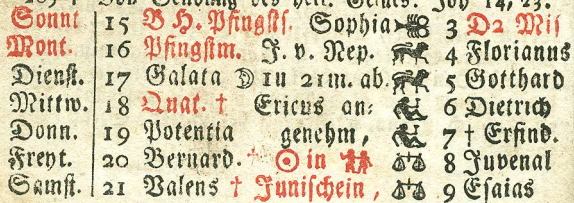 Sonnt 15 B H. Pfingstf. Sophia 3 D2 Mis
Mont. 16 Pfingstm. J. v. Nep. 4 Florianus
Dienst. 17 Galata ☽ 1 u 21m. ab. 5 Gotthard
Mittw. 18 Quat. † Ericus an⸗ 6 Dietrich
Donn. 19 Potentia genehm, 7 † Erfind.
Freyt. 20 Bernard. † ☉ in 8 Juvenal
Samst. 21 Valens † Junischein, 9 Esaias